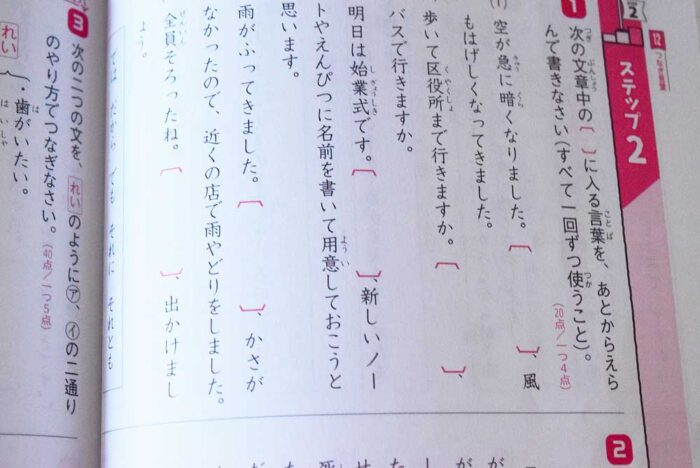 12 つなぎ言葉
2
ステップ2
1
次の文章中の〔 〕に入る言葉を、あとからえら
んで書きなさい(すべて一回ずつ使うこと)。
(20点/一つ4点)
(1) 空が急に暗くなりました。〔 〕、風
もはげしくなってきました。
歩いて区役所まで行きますか。〔 〕、
バスで行きますか。
明日は始業式です。〔 〕、新しいノー
トやえんぴつに名前を書いて用意しておこうと
思います。
雨がふってきました。〔 〕、かさが
なかったので、近くの店で雨やどりをしました。
全員そろったね。〔 〕、出かけまし
ょう。
では だから でも それに それとも
3
次の二つの文を、れいのように㋐、㋑の二通り
のやり方でつなぎなさい。
(40点/一つ5点)
れい
・歯がいたい。
はいしゃ
2